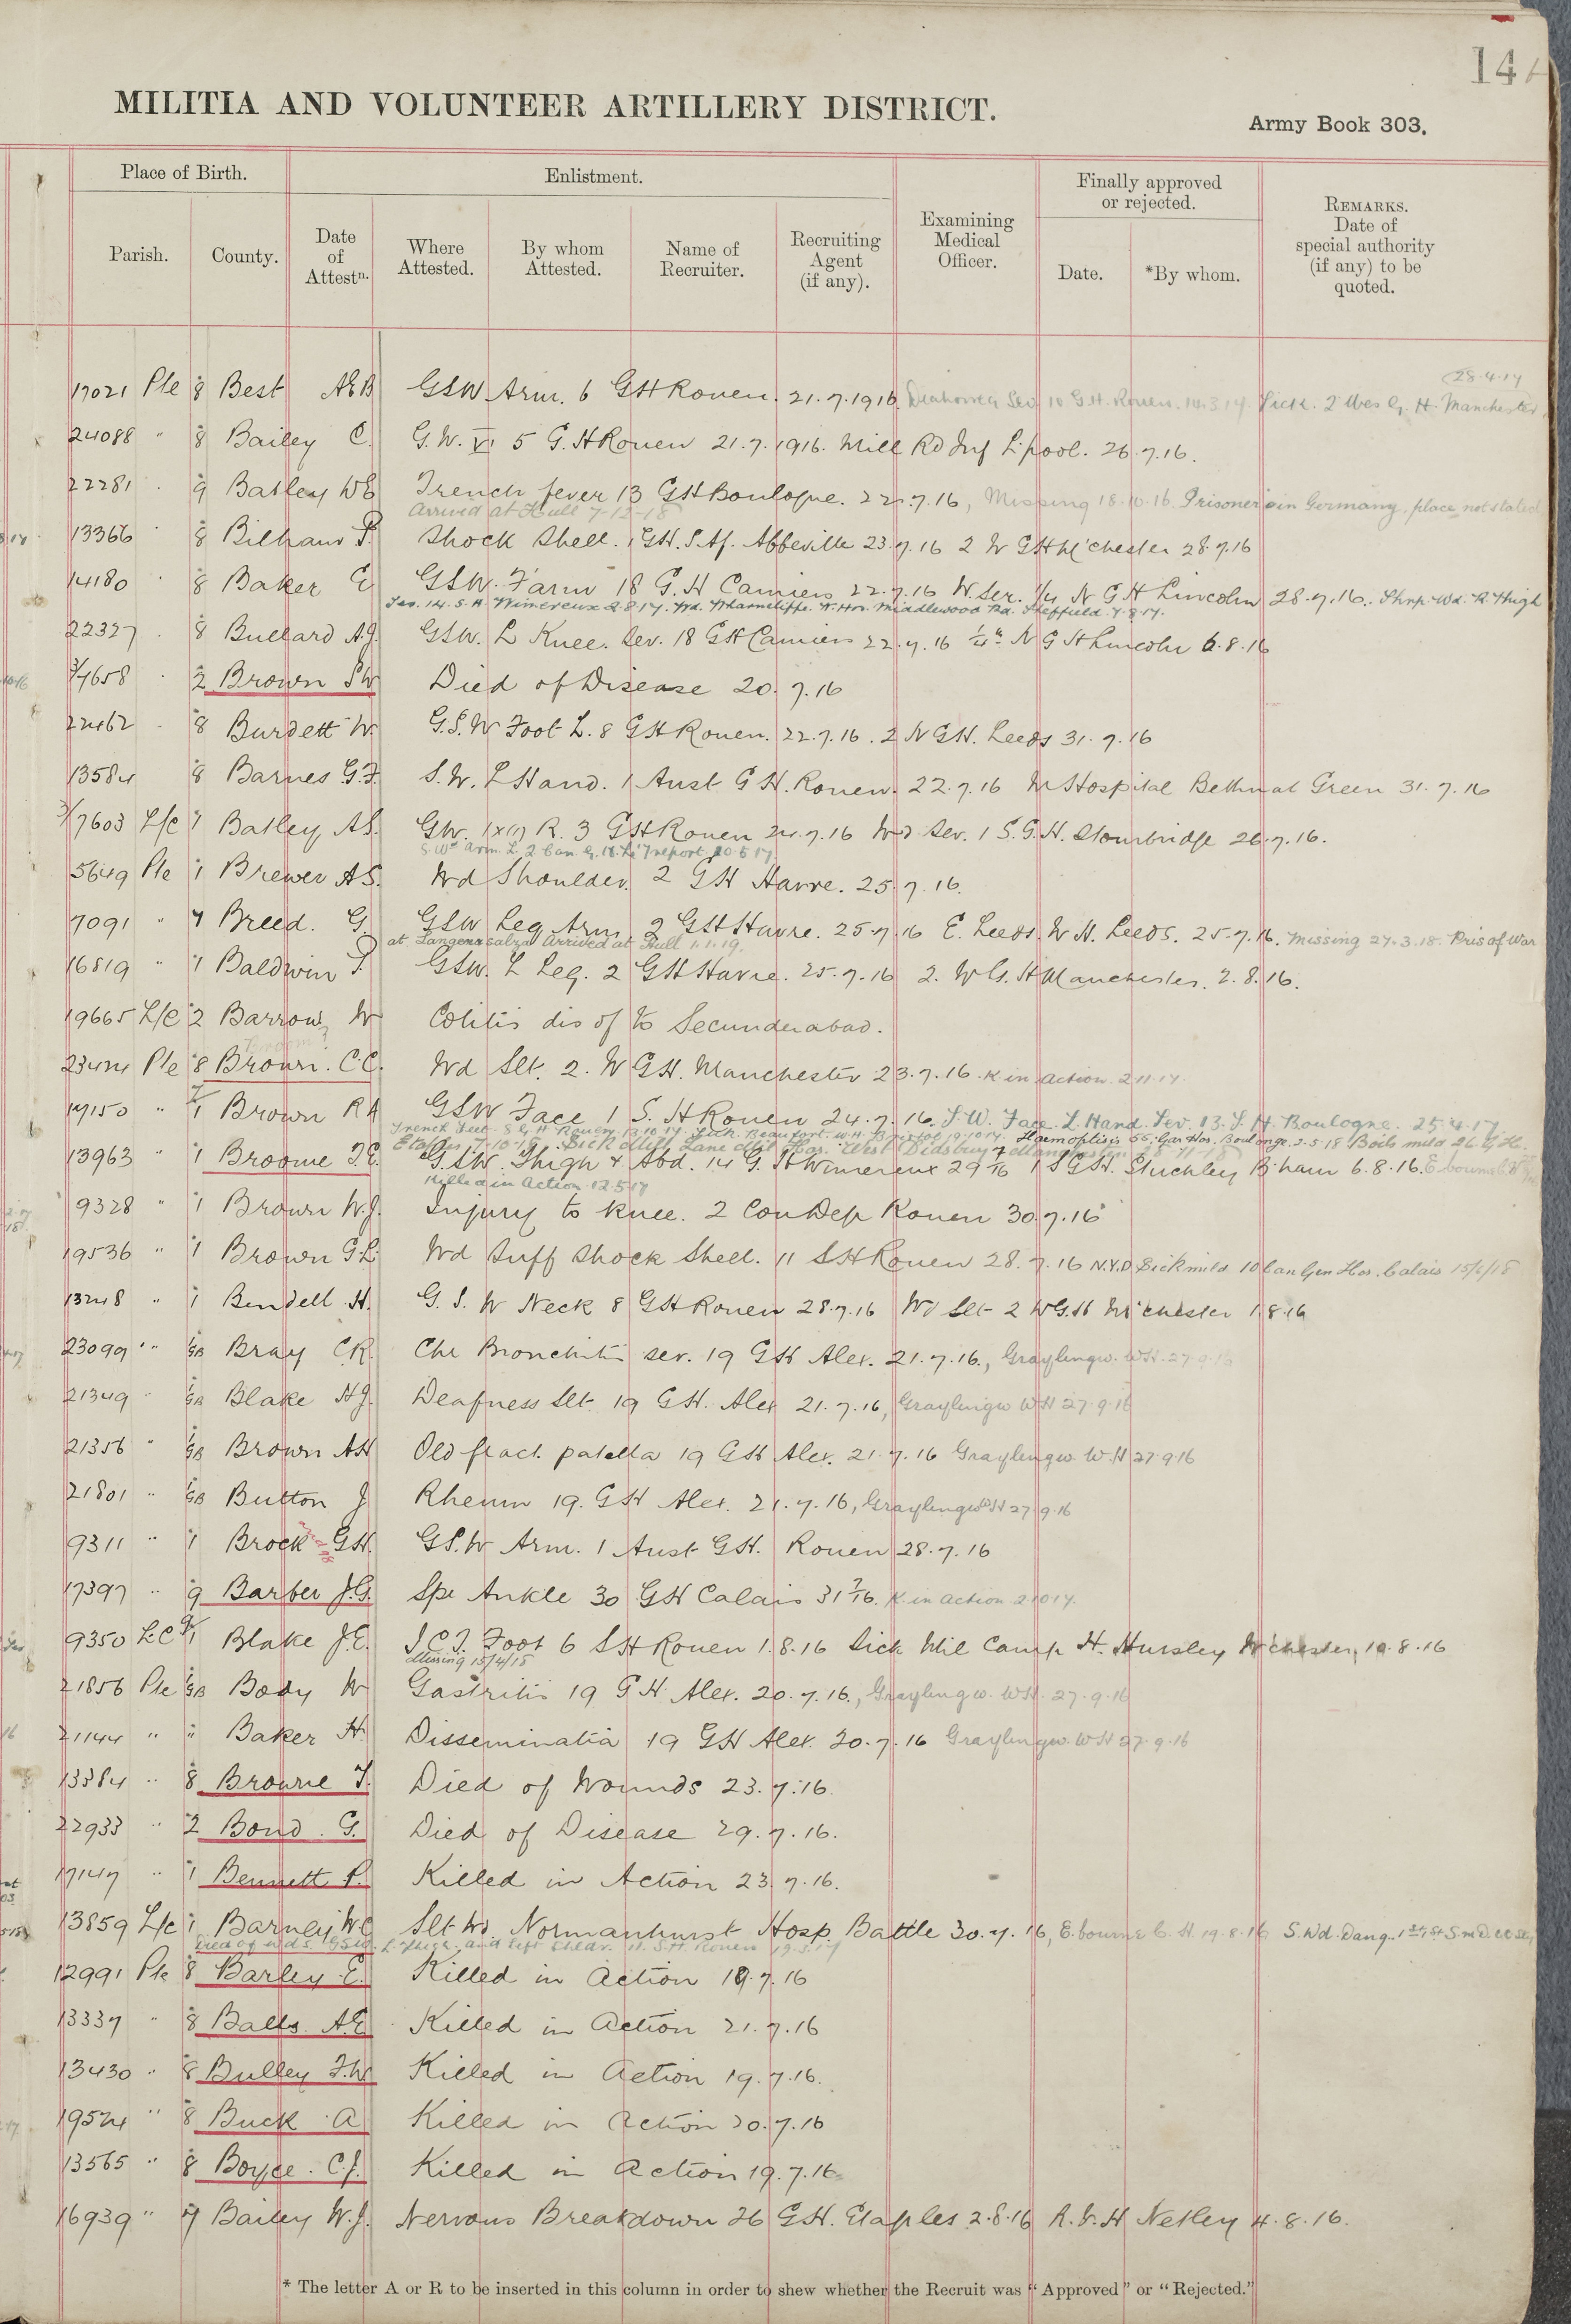 14
MILITIA AND VOLUNTEER ARTILLERY DISTRICT.
Army Book 303.
Place of Birth.
Enlistment.
Finally approved or rejected.
Parish.
County.
Date of Attestn.
Where Attested.
By whom Attested.
Name of Recruiter.
Recruiting Agent (if any).
Examining Medical Officer.
Date.
*By whom.
REMARKS. Date of special authority (if any) to be quoted.
28.4.17
17021 Pte 8 Best AEB GSW Arm. 6 GH Rouen. 21.7.1916 Diahorrea Sev 10 G.H. Rouen. 14.3.17 Sick. 2 Wes G. H. Manchester
24088 " 8 Bailey C. G.W. VI 5 G.H Rouen 21.7.1916. Mill Rd Inf L'pool. 26.7.16.
22281 " 9 Batley WE Trench fever 13 GH Boulogne. 22.7.16, Missing 18.10.16 Prisoner in Germany, place not stated
Arrived at Hull 7-12-18
13366 " 8 Bilham P. Shock Shell. 1 GH. S.Af. Abbeville 23.7.16 2 W GH M'chester 28.7.16
14180 " 8 Baker E GSW. F'arm 18 G.H Camiers 22.7.16 W. Ser. 1/4 N G H Lincoln 28.7.16. Shrp. Wd. R. Thigh
Sev. 14. S.H. Wimereux 2.8.17. Wd. Wharncliffe. W. Hos. Middlewood Rd. Sheffield. 7.8.17.
22327 " 8 Bullard A.J. GSW. L Knee. Sev. 18 GH Camiers 22.7.16 1/4th N G H Lincoln 6.8.16
3/7658 " 2 Brown SW Died of Disease 20.7.16
22462 " 8 Burdett W. G.S.W Foot L. 8 GH Rouen. 22.7.16. 2 N GH. Leeds 31.7.16
13584 8 Barnes G.F. S.W. L Hand. 1 Aust G H. Rouen. 22.7.16 M Hospital Bethnal Green 31.7.16
3/7603 L/c 7 Batley A.S. GW. 1x(1) R. 3 GH Rouen 24.7.16 Wd Sev. 1 S.G.H. Stourbridge 26.7.16.
S. Wd Arm. L. 2 Can. G.H. Le T'report 20.5.17
5649 Pte 1 Brewer A.S. Wd Shoulder. 2 GH Havre. 25.7.16.
7091 " 7 Breed. G. GSW Leg Arm. 2 GH Havre. 25.7.16 E. Leeds. W.H. Leeds. 25.7.16. Missing 27.3.18. Pris of War
at Langensalza Arrived at Hull 1.1.19.
16819 " 1 Baldwin P. GSW. L Leg. 2 GH Havre. 25.7.16 2. W G. H Manchester. 2.8.16.
19665 L/c 2 Barrow W Colitis dis of to Secunderabad.
23424 Pte 8 Brown. C.C. Wd Slt. 2. W GH. Manchester 23.7.16. K. in Action. 2.11.17.
14150 " 7/1 Brown RA GSW Face 1 S. H Rouen 24.7.16. S.W. Face. L Hand. Sev. 13. S. H. Boulogne. 25.4.17.
Trench Feet. 8 G.H Rouen 13.10.17. Sick. Beaufort. W.H. Bristol 19.10.17. Haemoptisis 55. Gen Hos. Boulogne. 2.5.18 Boils mild 26 G H.
Etaples 7-10-18. Sick Mill Lane Mil. Hos. West Didsbury Manchester
13963 " 1 Broome T.E. G.S.W. Thigh & Abd. 14 G.H Wimereux 29/7/16 1 S G H. Stuchley B'ham 6.8.16. E bourne
Killed in Action 12.5.17
9328 " 1 Brown W.J. Injury to Knee. 2 Con Dep Rouen 30.7.16
19536 " 1 Brown G.L. Wd Suff Shock Shell. 11 S H Rouen 28.7.16 N.Y.D Sick mild 10 Can Gen Hos. Calais 15/6/18
13248 " 1 Bendell H. G.S.W Neck 8 GH Rouen 28.7.16 Wd Slt 2 W G.H M'chester 1.8.16
23099 " 1/GB Bray C.R. Chr Bronchitis sev. 19 GH Alex. 21.7.16., Graylingw. WH. 27.9.16
21349 " 1/GB Blake H.J. Deafness Slt. 19 G.H. Alex 21.7.16, Graylingw WH 27.9.16
21356 " 1/GB Brown AH Old fract. patella 19 GH Alex. 21.7.16 Graylingw. W.H 27.9.16
21801 " 1/GB Button J Rheum 19. G H Alex. 21.7.16, Graylingw WH 27.9.16
9311 " 1 Brock G.H. GS.W Arm. 1 Aust G.H. Rouen 28.7.16
17397 " 9 Barber J.G. Spr Ankle 30 GH Calais 31/7/16. K. in action 2.10.17.
9350 L.C 9/1 Blake J.E. I.C.T. Foot 6 S H Rouen 1.8.16 Sick Mil Camp H. Hursley W'chester, 10.8.16
Missing 15/4/18
21856 Pte 1/GB Body W Gastritis 19 G H. Alex. 20.7.16., Graylingw. WH. 27.9.16
21144 " " Baker H. Disseminatia 19 GH Alex. 20.7.16 Graylingw. WH 27.9.16
13384 " 8 Browne T. Died of Wounds 23.7.16.
22933 " 2 Bond. G. Died of Disease 29.7.16.
17147 " 1 Bennett P. Killed in Action 23.7.16.
13859 L/c 1 Barney WC Slt Wd Normanhurst Hosp. Battle 30.7.16, E.bourne C. H. 19.8.16 S. Wd. Dang.
Died of wds GSW. L. Thigh. and left Shldr. 11. S.H. Rouen 19.5.17
12991 Pte 8 Barley E. Killed in Action 19.7.16
13337 " 8 Balls A.E. Killed in Action 21.7.16
13430 " 8 Bulley F.W Killed in Action 19.7.16.
19524 " 8 Buck A Killed in Action 20.7.16
13565 " 8 Boyce. C.J. Killed in Action 19.7.16
16939 " 7 Bailey W.J. Nervous Breakdown 26 G.H. Etaples 2.8.16 R.V.H Netley 4.8.16.
* The letter A or R to be inserted in this column in order to shew whether the Recruit was "Approved" or "Rejected."